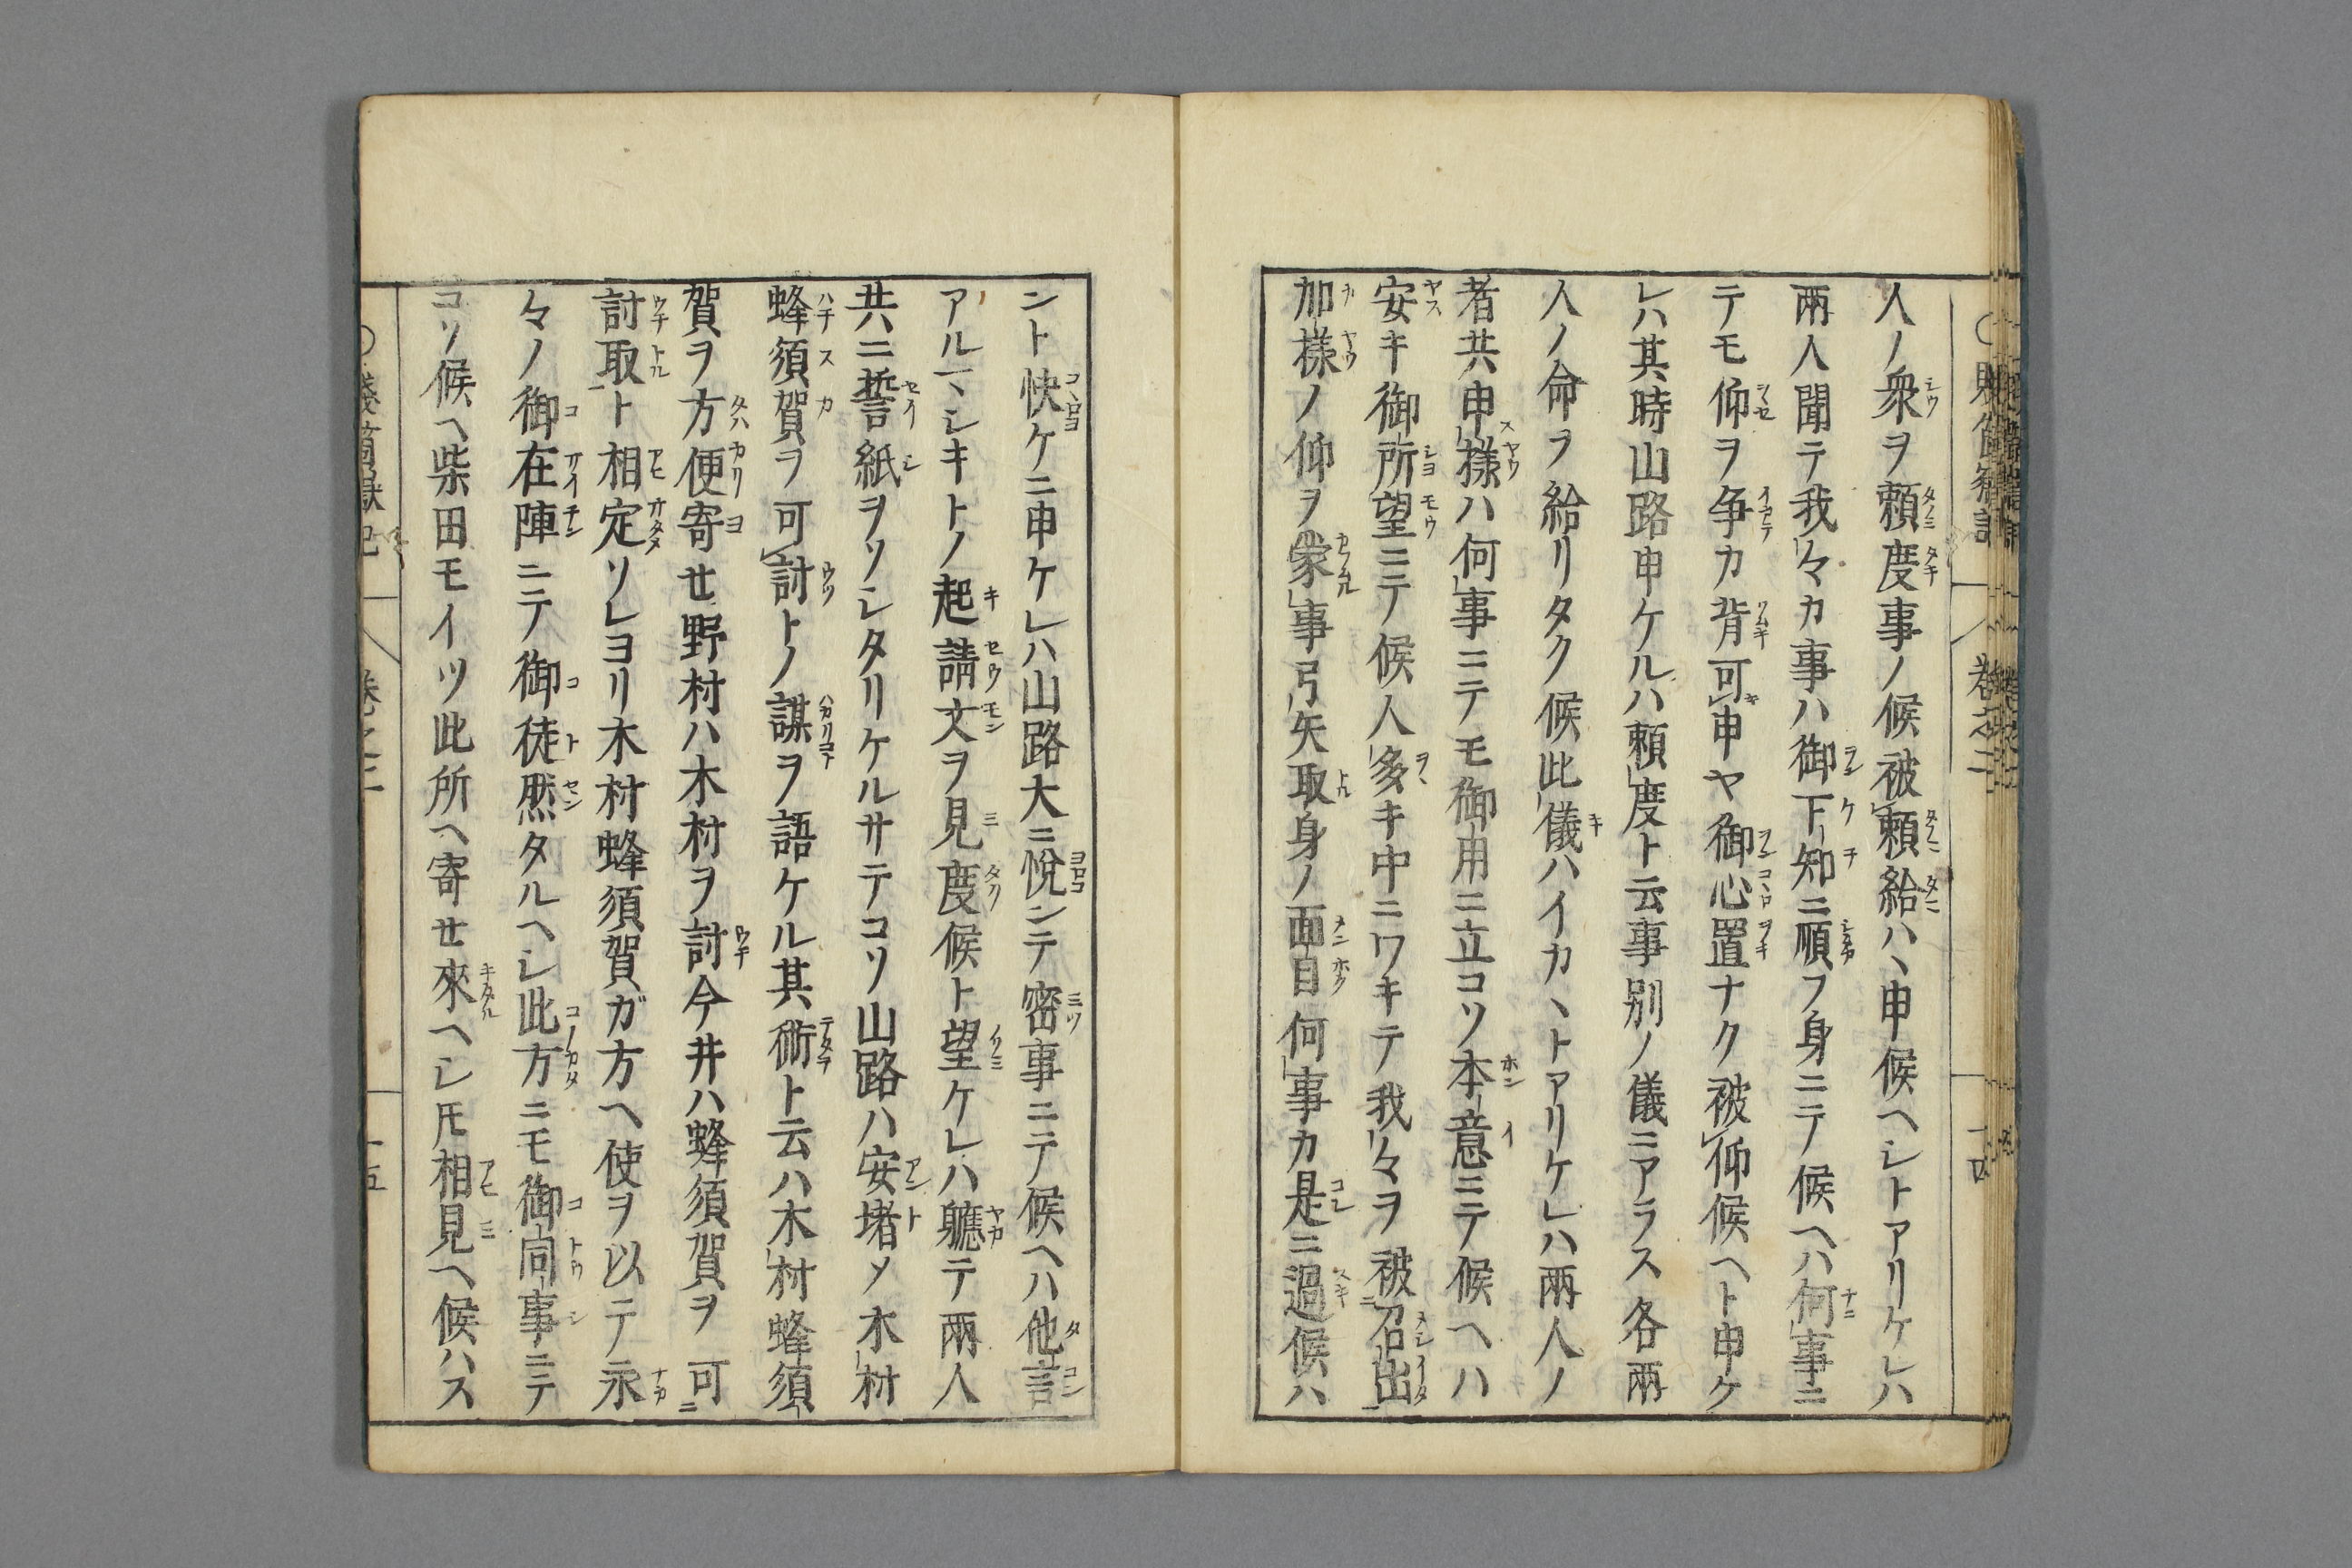 人ノ衆ヲ頼度事ノ候被頼給ハヽ申候ヘシトアリケレハ
兩人聞テ我々カ事ハ御下知ニ順フ身ニテ候ヘハ何事ニ
テモ仰ヲ争カ背可申ヤ御心置ナク被仰候ヘト申ケ
レハ其時山路申ケルハ頼度ト云事別ノ儀ニアラス各兩
人ノ命ヲ給リタク候此儀ハイカヽトアリケレハ兩人ノ
者共申様ハ何事ニテモ御用ニ立コソ本意ニテ候ヘハ
安キ御所望ニテ候人多キ中ニワキテ我々ヲ被召出
加様ノ仰ヲ蒙事弓矢取身ノ面目何事カ是ニ過候ハ
ント快ケニ申ケレハ山路大ニ悅ンテ密事ニテ候ヘハ他言
アルヘシキトノ起請文ヲ見度候ト望ケレハ軈テ兩人
共ニ誓紙ヲソシタリケルサテコソ山路ハ安堵メ木村
蜂須賀ヲ可討トノ謀ヲ語ケル其術ト云ハ木村蜂須
賀ヲ方便寄せ野村ハ木村ヲ討今井ハ蜂須賀ヲ可
討取ト相定ソレヨリ木村蜂須賀ガ方ヘ使ヲ以テ永
々ノ御在陣ニテ御徒然タルヘシ此方ニモ御同事ニテ
コソ候ヘ柴田モイツ此所ヘ寄せ來ヘシ𪜈相見ヘ候ハス
巻之二
十四
十五